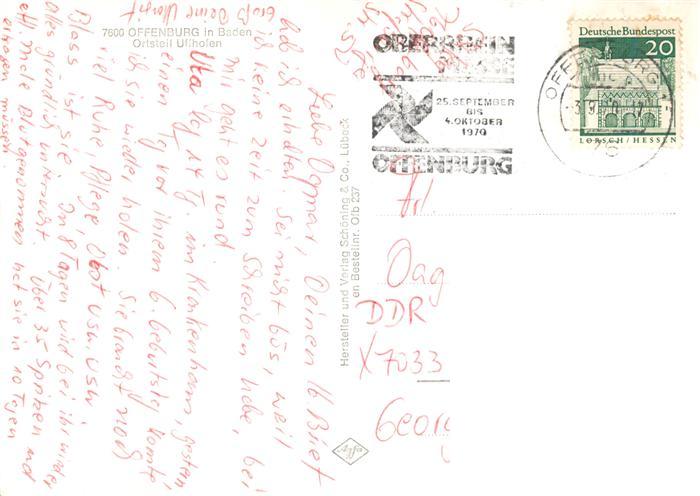 7600 OFFENBURG in Baden
Ortsteil Uffhofen
Liebe Dagmar, Deinen lb Brief
hab ich erhalten. Sei nicht bös, weil
ich keine Zeit zum Schreiben habe, bei
mir geht es rund
Uka lag 14 Tg. im Krankenhaus, gestern,
einen Tg vor ihrem 6. Geburtstag konnte
ich sie wieder holen. Sie braucht noch
viel Ruhe, Pflege Obst usw. usw
Blass ist sie. In 8 Tagen wird bei ihr wieder
alles gründlich untersucht. Über 35 Spritzen und
etl. male Blutabnahmen hat sie in 10 Tagen
ertragen müssen.
Hersteller und Verlag Schöning & Co., Lübeck
en Bestellnr. Ofb 237
OBERRHEIN
MESSE
25.SEPTEMBER
BIS
4.OKTOBER
1970
OFFENBURG
Deutsche Bundespost
20
LORSCH/HESSEN
OFFENBURG
76
Frl
Dag
DDR
X7033
Geor
Agfa